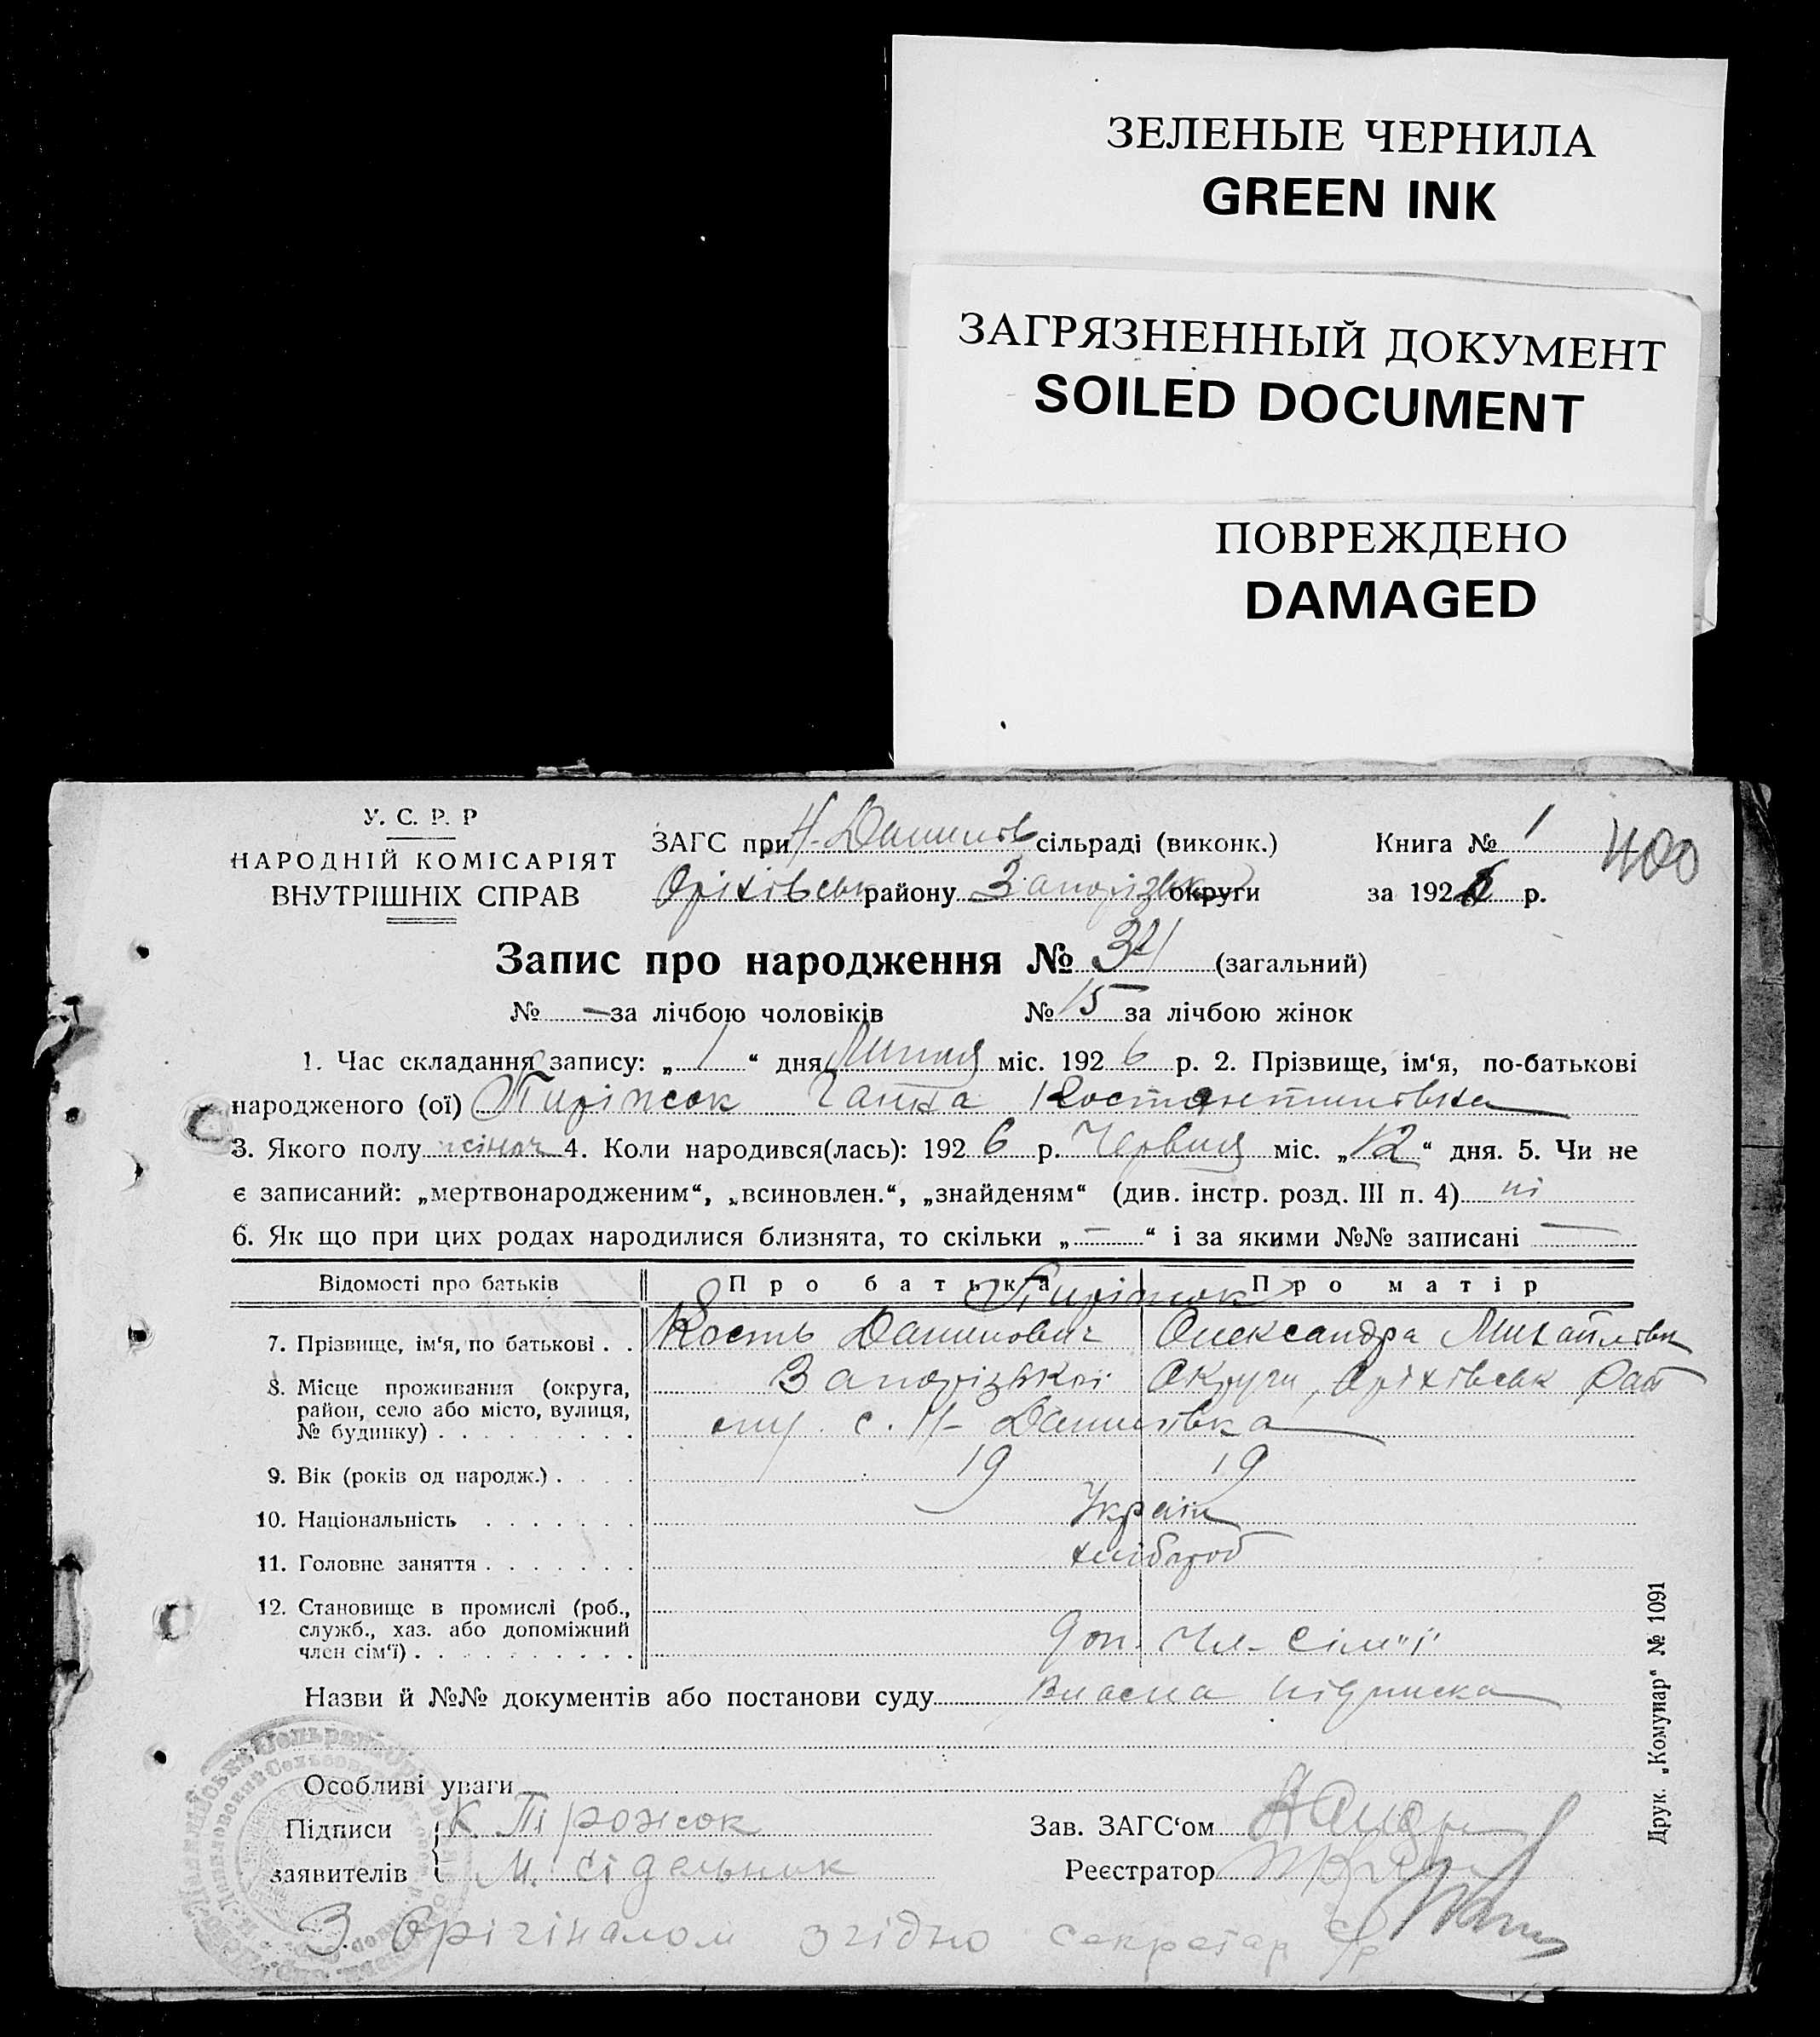 ЗЕЛЕНЫЕ ЧЕРНИЛА
GREEN INK
ЗАГРЯЗНЕННЫЙ ДОКУМЕНТ
SOILED DOCUMENT
ПОВРЕЖДЕНО
DAMAGED
У. С. Р. Р
НАРОДНІЙ КОМІСАРІЯТ
ВНУТРІШНІХ СПРАВ
ЗАГС при Н-Данилів сільраді (виконк.)
Оріхівськ району Запорізької округи
Книга № 1
за 1926 р.
400
Запис про народження № 34 (загальний)
№ — за лічбою чоловіків № 15 за лічбою жінок
1. Час складання запису: „ 1 “ дня Липня міс. 1926 р. 2. Прізвище, ім‘я, по-батькові
народженого (ої) Пиріжок Ганна Костянтинівна
3. Якого полу жіноч 4. Коли народився(лась): 1926 р. Червня міс. „12“ дня. 5. Чи не
є записаний: „мертвонародженим“, „всиновлен.“, „знайденям“ (див. інстр. розд. III п. 4) ні
6. Як що при цих родах народилися близнята, то скільки „ — “ і за якими №№ записані —
Відомості про батьків Про батька Про матір
Пиріжок
7. Прізвище, ім‘я, по батькові . . Кость Данилович Олександра Михайлівн
8. Місце проживання (округа, Запорізької Округи, Оріхівськ рай
район, село або місто, вулиця,
№ будинку) . . . . . . . . . ону с. Н-Данилівка
9. Вік (років од народж.) . . . . 19 19
10. Національність . . . . . . . Україн
11. Головне заняття . . . . . . . хлібороб
12. Становище в промислі (роб.,
служб., хаз. або допоміжний
член сім‘ї) . . . . . . . . . . доп. чл- сім"ї
Назви й №№ документів або постанови суду Власна підписка
Особливі уваги
Підписи К. Пірожок
заявителів М. Сідельник
Зав. ЗАГС‘ом
Реєстратор
З орігіналом згідно секретар с/р
Друк. „Комунар“ № 1091